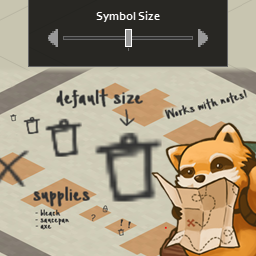 Symbol Size
default size
Works with notes!
supplies
- bleach
- saucepan
- axe
? !!